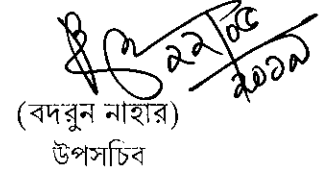 ২২/০৫
২০১৯
(বদরুন নাহার)
উপসচিব